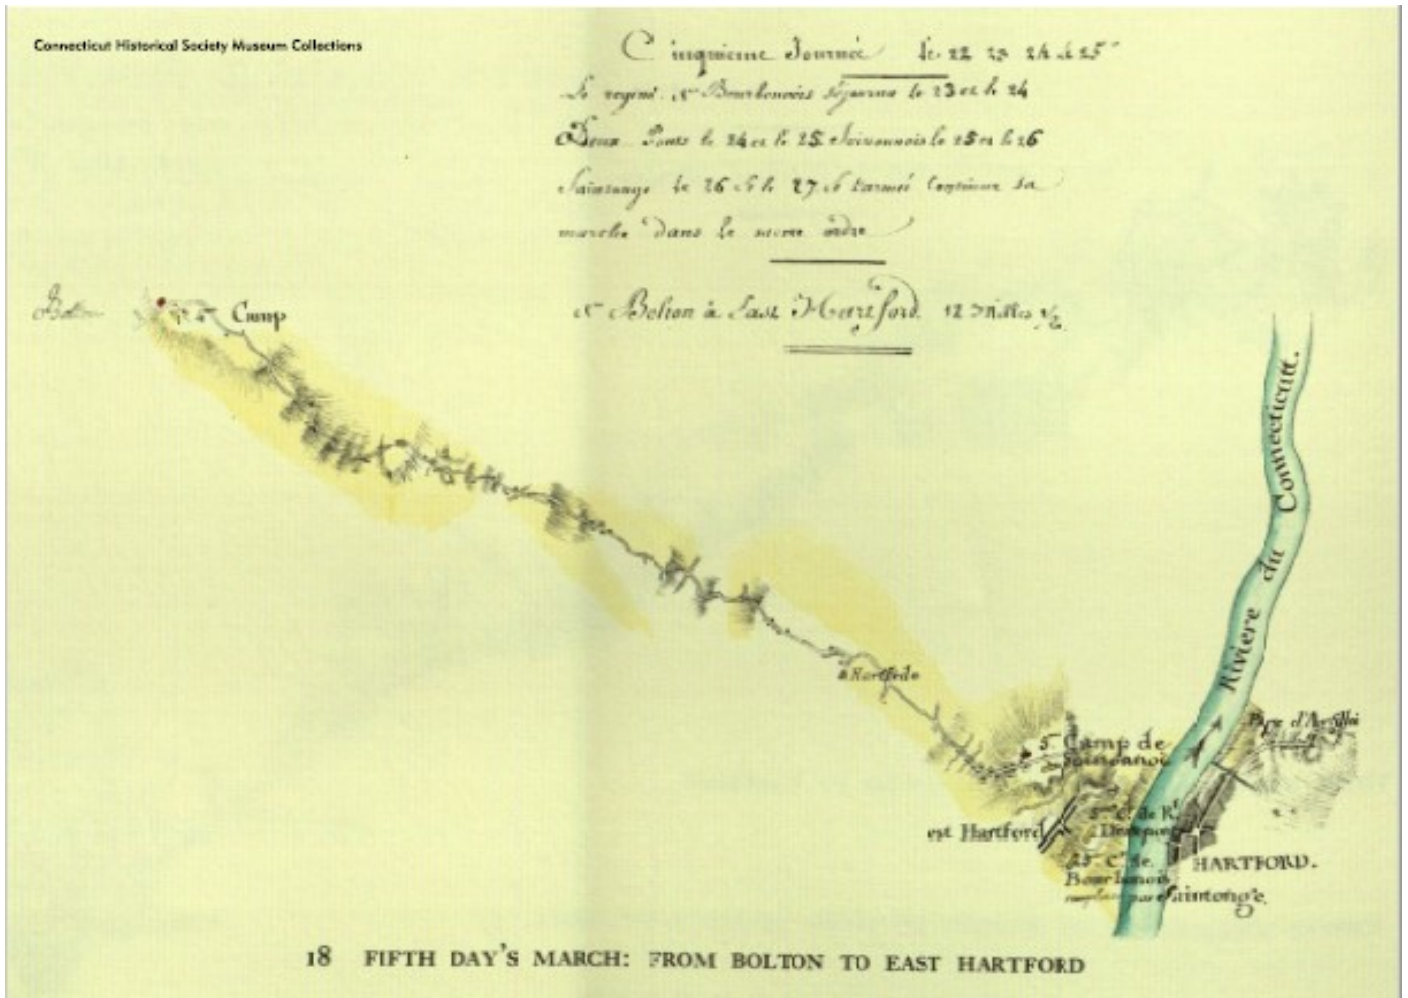 Connecticut Historical Society Museum Collections
Cinquieme Journée le 22 23 24 et 25
Le regimt. de Bourbonnois séjourna le 23 et le 24
Deux Ponts le 24 et le 25 Soissonnois le 25 et le 26
Saintonge le 26 et le 27 et l'armée Continue sa
marche dans le meme ordre
de Bolton à East Hartford. 12 Milles ½
Bolton
Camp
Riviere du Connecticut.
Hartforde
5. Camp de
Soissonnois
Parc d'Artillri
est Hartford
5. C. de Rt.
Deuxponts
5. C. de
Bourbonois
remplacé par Saintonge.
HARTFORD.
18 FIFTH DAY'S MARCH: FROM BOLTON TO EAST HARTFORD